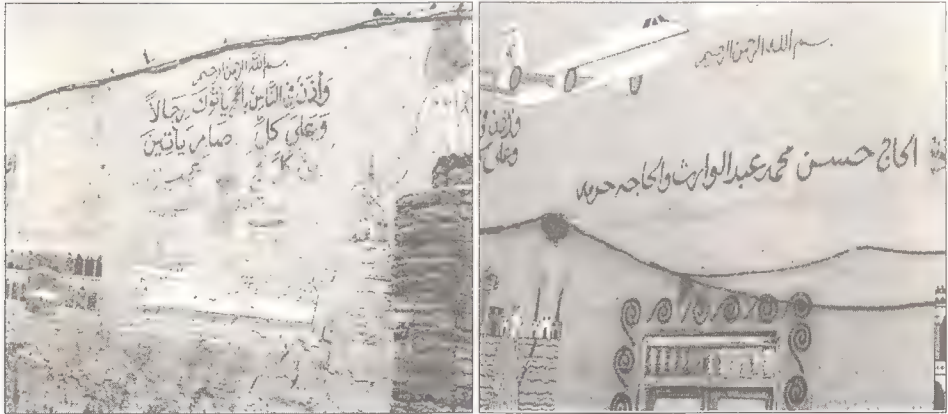 بسم الله الرحمن الرحيم
وأذن في الناس بالحج يأتوك رجالاً
وعلى كل ضامر يأتين
من كل
بسم الله الرحمن الرحيم
وأذن و
وعلى ك
الحاج حسن محمد عبدالوارث والحاجه